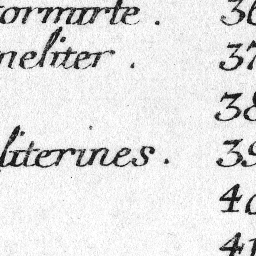 tormarte . 36
neliter . 37
38
literines . 39
40
41